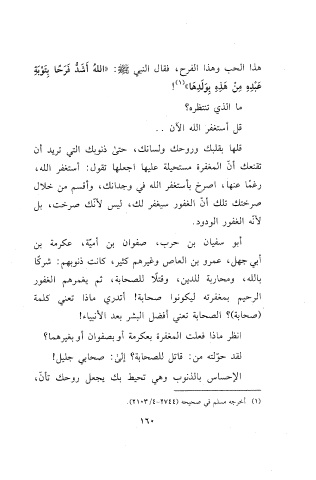 هذا الحب وهذا الفرح، فقال النبي ﷺ: «اللهُ أَشَدُّ فَرَحًا بِتَوْبَةِ
عَبْدِهِ مِنْ هَذِهِ بِوَلَدِهَا»(١)!
ما الذي تنتظره؟
قل أستغفر الله الآن ..
قلها بقلبك وروحك ولسانك، حتىٰ ذنوبك التي تريد أن
تقنعك أنّ المغفرة مستحيلة عليها اجعلها تقول: أستغفر الله،
رغمًا عنها، اصرخ بأستغفر الله في وجدانك، وأقسم من خلال
صرختك تلك أنّ الغفور سيغفر لك، ليس لأنّك صرخت، بل
لأنّه الغفور الودود.
أبو سفيان بن حرب، صفوان بن أميّة، عكرمة بن
أبي جهل، عمرو بن العاص وغيرهم كثير، كانت ذنوبهم: شركًا
بالله، ومحاربة للدين، وقتلًا للصحابة، ثم يغمرهم الغفور
الرحيم بمغفرته ليكونوا صحابة! أتدري ماذا تعني كلمة
(صحابة)؟ الصحابة تعني أفضل البشر بعد الأنبياء!
انظر ماذا فعلت المغفرة بعكرمة أو بصفوان أو بغيرهما؟
لقد حوّلته من: قاتل للصحابة؟ إلىٰ: صحابي جليل!
الإحساس بالذنوب وهي تحيط بك يجعل روحك تأنّ،
(١) أخرجه مسلم في صحيحه (٢٧٤٤-٢١٠٣/٤).
١٦٠